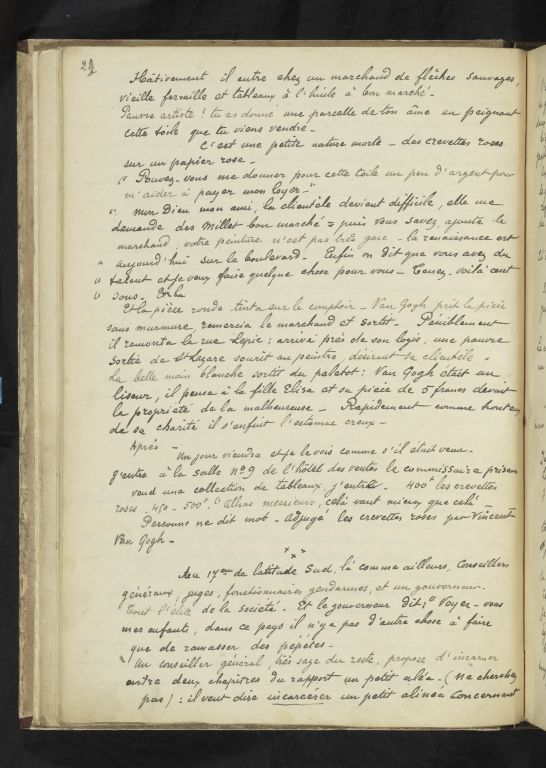 22
Hâtivement il entre chez un marchand de flêches sauvages,
vieille ferraille et tableaux à l'huile à bon marché -
Pauvre artiste! tu as donné une parcelle de ton âme en peignant
cette toile que tu viens vendre -
C'est une petite nature morte - des crevettes roses
sur un papier rose -
" Pouvez-vous me donner pour cette toile un peu d'argent pour
m'aider à payer mon loyer - "
" Mon Dieu mon ami, la clientèle devient difficile, elle me
demande des Millet bon marché : puis vous savez, ajoute le
marchand, votre peinture n'est pas très gaie - la renaissance est
" aujourd'hui sur le boulevard - Enfin on dit que vous avez du
" talent et je veux faire quelque chose pour vous - Tenez - voilà cent
" sous -
Et la pièce ronde tinta sur le comptoir - Van Gogh prit la pièce
sans murmure, remercia le marchand et sortit - Péniblement
il remonta la rue Lepic : arrivé près de son logis, une pauvre
sortie de St Lazare sourit au peintre, désirant sa clientèle.
La belle main blanche sortit du paletot : Van Gogh était un
liseur, il pensa à la fille Elisa et sa pièce de 5 francs devint
la propriété de la malheureuse - Rapidement comme honteux
de sa charité il s'enfuit l'estomac creux -
Après -
Un jour viendra et je le vois comme s'il était venu -
j'entre à la salle No 9 de l'hôtel des ventes le commissaire priseur
vend une collection de tableaux, j'entre - 400f les crevettes
roses, 450 - 500f. " allons messieurs, celà vaut mieux que celà -
Personne ne dit mot - Adjugé les crevettes roses par Vincent
Van Gogh -
Au 17eme de latitude Sud, là comme ailleurs, Conseillers
généraux, juges, fonctionnaires, gendarmes, et un gouverneur -
Tout l'élite de la société - Et le gouverneur dit : " Voyez-vous
mes enfants, dans ce pays il n'y a pas d'autre chose à faire
que de ramasser des pépétes -
Un conseiller général, très sage du reste, propose d'incarner
entre deux chapitres du rapport un petit aléa - (Ne cherchez
pas) : il veut dire incarcérer un petit alinéa concernant